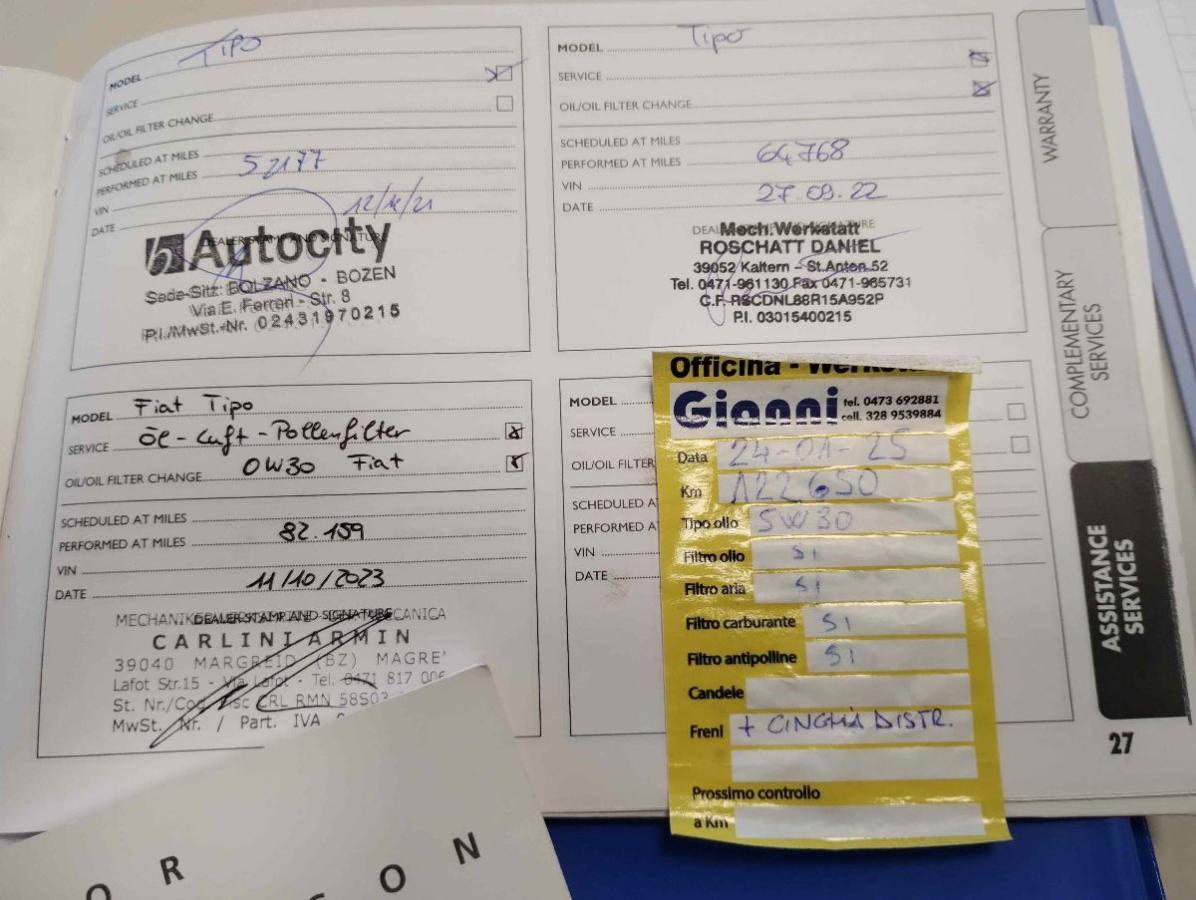 MODEL Tipo
SERVICE
OIL/OIL FILTER CHANGE
SCHEDULED AT MILES
PERFORMED AT MILES 52177
VIN
DATE 12/4/21
DEALER STAMP AND SIGNATURE
Autocity
Sede-Sitz: BOLZANO - BOZEN
Via E. Ferrari - Str. 8
P.I./MwSt.-Nr. 02431970215
MODEL Tipo
SERVICE
OIL/OIL FILTER CHANGE
SCHEDULED AT MILES
PERFORMED AT MILES 64768
VIN
DATE 27.09.22
DEALER STAMP AND SIGNATURE
Mech. Werkstatt
ROSCHATT DANIEL
39052 Kaltern - St.Anton 52
Tel. 0471-961130 Fax 0471-965731
C.F. RSCDNL88R15A952P
P.I. 03015400215
MODEL Fiat Tipo
SERVICE Öl-Luft-Pollenfilter
OIL/OIL FILTER CHANGE 0W30 Fiat
SCHEDULED AT MILES
PERFORMED AT MILES 82.159
VIN
DATE 11/10/2023
DEALER STAMP AND SIGNATURE
CARLINI ARMIN
39040 MARGREID (BZ) MAGRE'
Lafot Str.15 - Via Lafot - Tel. 0471 817 006
St. Nr./Cod. Fisc CRL RMN 58S03
MwSt. Nr. / Part. IVA
MODEL
SERVICE
OIL/OIL FILTER
SCHEDULED A
PERFORMED A
VIN
DATE
Officina - Werksta
Gianni tel. 0473 692881
cell. 328 9539884
Data 24-01-25
Km 122650
Tipo olio 5W30
Filtro olio SI
Filtro aria SI
Filtro carburante SI
Filtro antipolline SI
Candele
Freni + CINGHIA DISTR.
Prossimo controllo
a Km
WARRANTY
COMPLEMENTARY
SERVICES
ASSISTANCE
SERVICES
27
O R
C O N